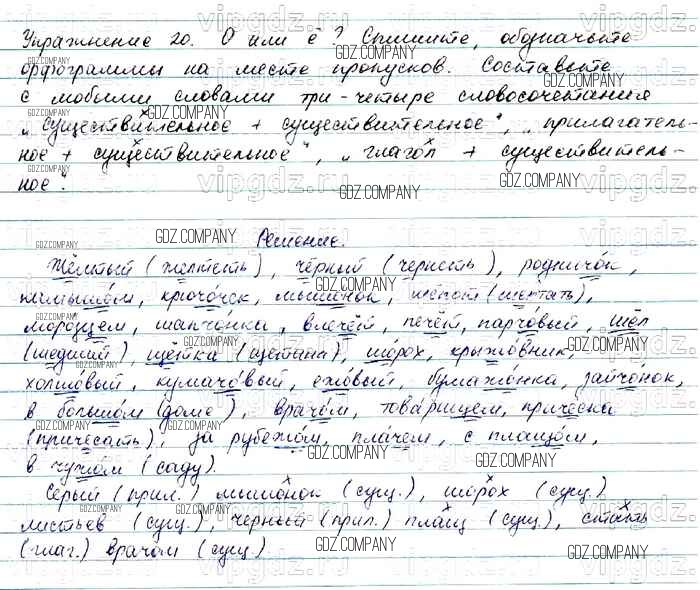 Упражнение 20. О или ё? Спишите, обозначьте
орфограммы на месте пропусков. Составьте
с любыми словами три-четыре словосочетания
„существительное + существительное", „прилагатель-
ное + существительное", „глагол + существитель-
ное".
Решение.
Жёлтый (желтеть), чёрный (чернеть), родничок,
камышом, крючочек, мышонок, шёпот (шептать),
морозцем, шапчонка, влечёт, печёт, парчовый, шёл
(шедший), щётка (щетина), шорох, крыжовник,
холщовый, кумачовый, ежовый, бумажонка, зайчонок,
в большом (доме), врачом, товарищем, причёска
(причесать), за рубежом, плачем, с плащом,
в чужом (саду).
Серый (прил.) мышонок (сущ.), шорох (сущ.)
листьев (сущ.), чёрный (прил.) плащ (сущ.), стать
(глаг.) врачом (сущ.).
GDZ.COMPANY
vipgdz.ru